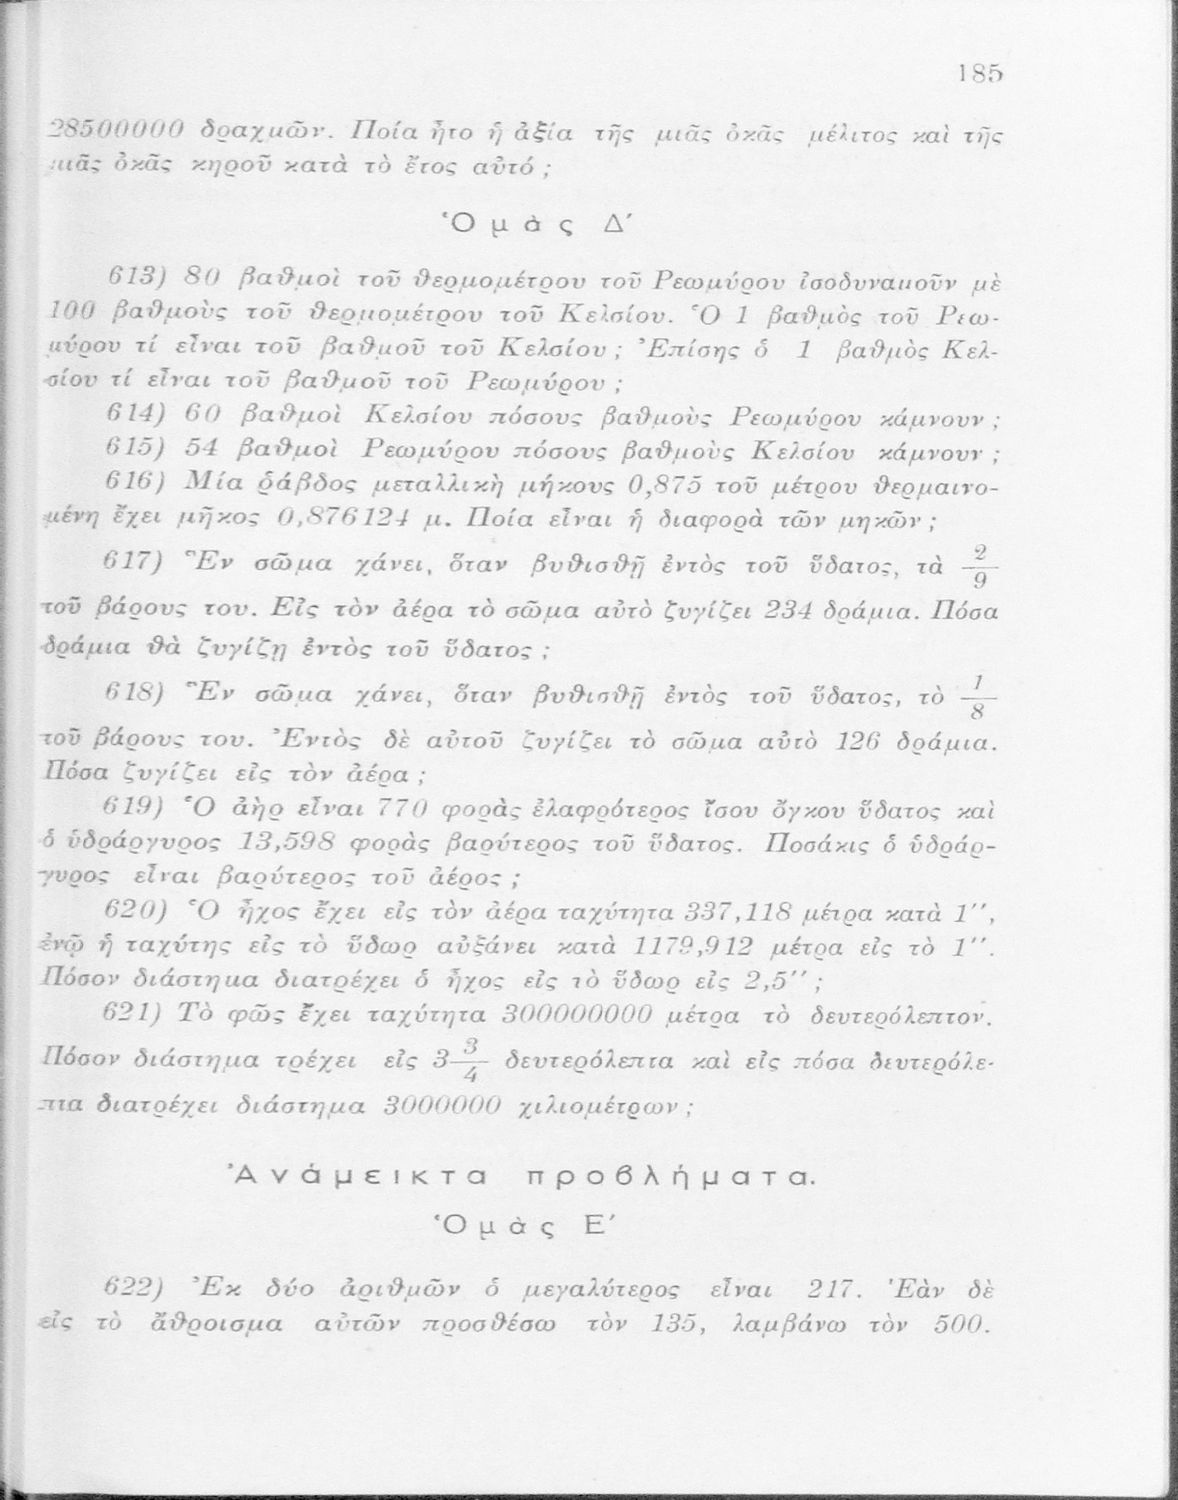 185
28500000 δραχμῶν. Ποία ἦτο ἡ ἀξία τῆς μιᾶς ὀκᾶς μέλιτος καὶ τῆς
μιᾶς ὀκᾶς κηροῦ κατὰ τὸ ἔτος αὐτό ;
Ὁμὰς Δ′
613) 80 βαθμοὶ τοῦ θερμομέτρου τοῦ Ρεωμύρου ἰσοδυναμοῦν μὲ
100 βαθμοὺς τοῦ θερμομέτρου τοῦ Κελσίου. Ὁ 1 βαθμὸς τοῦ Ρεω-
μύρου τί εἶναι τοῦ βαθμοῦ τοῦ Κελσίου ; Ἐπίσης ὁ 1 βαθμὸς Κελ-
σίου τί εἶναι τοῦ βαθμοῦ τοῦ Ρεωμύρου ;
614) 60 βαθμοὶ Κελσίου πόσους βαθμοὺς Ρεωμύρου κάμνουν ;
615) 54 βαθμοὶ Ρεωμύρου πόσους βαθμοὺς Κελσίου κάμνουν ;
616) Μία ῥάβδος μεταλλικὴ μήκους 0,875 τοῦ μέτρου θερμαινο-
μένη ἔχει μῆκος 0,876124 μ. Ποία εἶναι ἡ διαφορὰ τῶν μηκῶν ;
617) Ἓν σῶμα χάνει, ὅταν βυθισθῇ ἐντὸς τοῦ ὕδατος, τὰ 2/9
τοῦ βάρους του. Εἰς τὸν ἀέρα τὸ σῶμα αὐτὸ ζυγίζει 234 δράμια. Πόσα
δράμια θὰ ζυγίζῃ ἐντὸς τοῦ ὕδατος ;
618) Ἓν σῶμα χάνει, ὅταν βυθισθῇ ἐντὸς τοῦ ὕδατος, τὸ 1/8
τοῦ βάρους του. Ἐντὸς δὲ αὐτοῦ ζυγίζει τὸ σῶμα αὐτὸ 126 δράμια.
Πόσα ζυγίζει εἰς τὸν ἀέρα ;
619) Ὁ ἀὴρ εἶναι 770 φορὰς ἐλαφρότερος ἴσου ὄγκου ὕδατος καὶ
ὁ ὑδράργυρος 13,598 φορὰς βαρύτερος τοῦ ὕδατος. Ποσάκις ὁ ὑδράρ-
γυρος εἶναι βαρύτερος τοῦ ἀέρος ;
620) Ὁ ἦχος ἔχει εἰς τὸν ἀέρα ταχύτητα 337,118 μέτρα κατὰ 1′′,
ἐνῷ ἡ ταχύτης εἰς τὸ ὕδωρ αὐξάνει κατὰ 1179,912 μέτρα εἰς τὸ 1′′.
Πόσον διάστημα διατρέχει ὁ ἦχος εἰς τὸ ὕδωρ εἰς 2,5′′ ;
621) Τὸ φῶς ἔχει ταχύτητα 300000000 μέτρα τὸ δευτερόλεπτον.
Πόσον διάστημα τρέχει εἰς 3 3/4 δευτερόλεπτα καὶ εἰς πόσα δευτερόλε-
πτα διατρέχει διάστημα 3000000 χιλιομέτρων ;
Ἀνάμεικτα προβλήματα.
Ὁμὰς Ε′
622) Ἐκ δύο ἀριθμῶν ὁ μεγαλύτερος εἶναι 217. Ἐὰν δὲ
εἰς τὸ ἄθροισμα αὐτῶν προσθέσω τὸν 135, λαμβάνω τὸν 500.